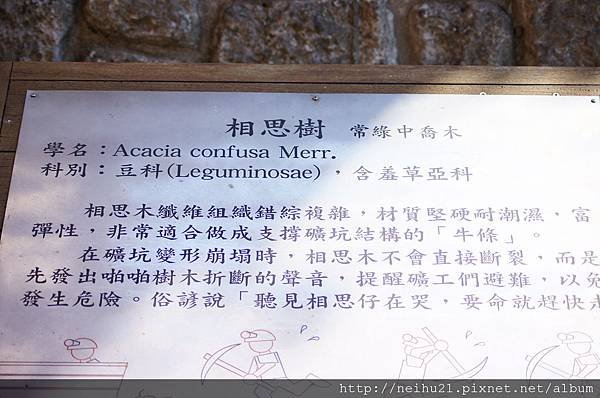 相思樹 常綠中喬木
學名：Acacia confusa Merr.
科別：豆科(Leguminosae)，含羞草亞科
相思木纖維組織錯綜複雜，材質堅硬耐潮濕，富
彈性，非常適合做成支撐礦坑結構的「牛條」。
在礦坑變形崩塌時，相思木不會直接斷裂，而是
先發出啪啪樹木折斷的聲音，提醒礦工們避難，以免
發生危險。俗諺說「聽見相思仔在哭，要命就趕快走
http://neihu21.pixnet.net/album